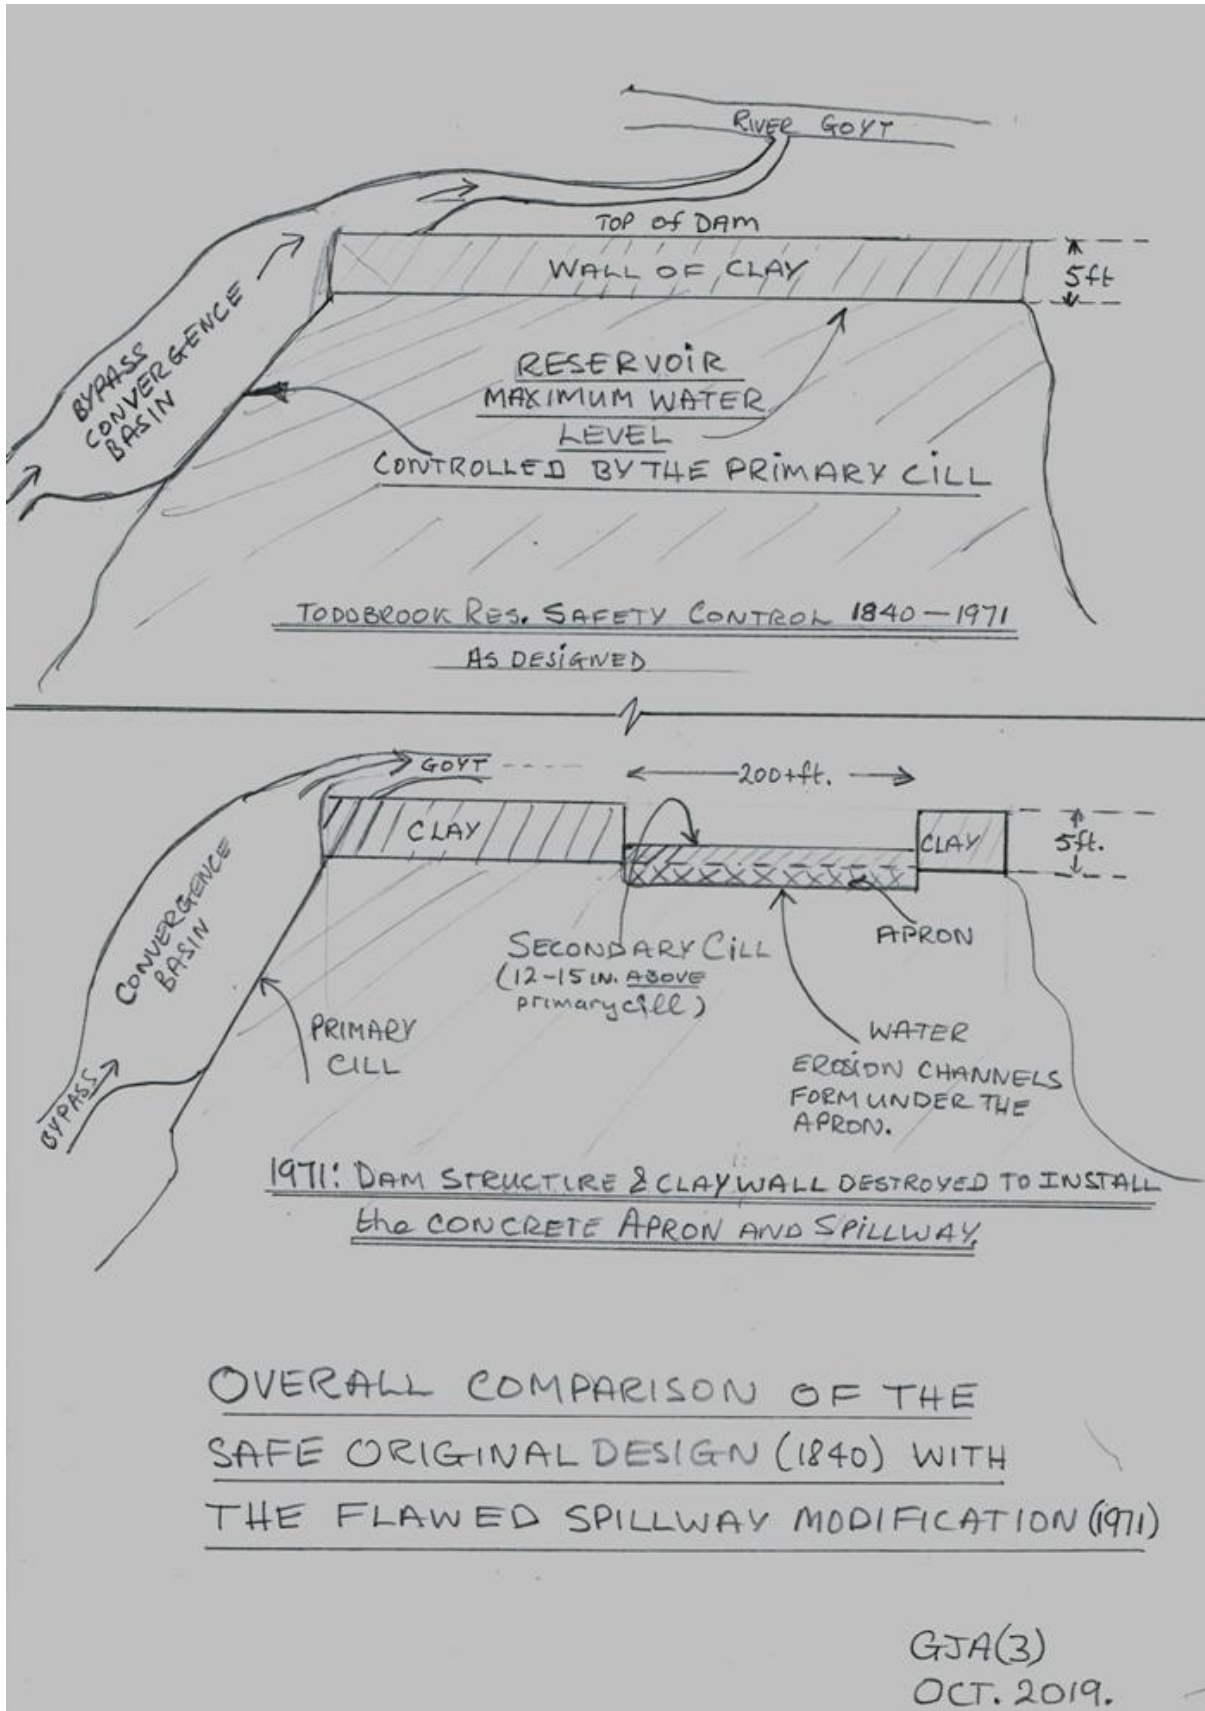 RIVER GOYT
TOP of DAM
WALL OF CLAY
5ft
BYPASS
CONVERGENCE
BASIN
RESERVOIR
MAXIMUM WATER
LEVEL
CONTROLLED BY THE PRIMARY CILL
TODDBROOK RES. SAFETY CONTROL 1840-1971
AS DESIGNED
GOYT
200+ft.
CLAY
CLAY
5ft.
CONVERGENCE
BASIN
SECONDARY CILL
(12-15 IN. ABOVE
primary cill)
APRON
PRIMARY
CILL
WATER
EROSION CHANNELS
FORM UNDER THE
APRON.
BYPASS
1971: DAM STRUCTURE & CLAY WALL DESTROYED TO INSTALL
the CONCRETE APRON AND SPILLWAY.
OVERALL COMPARISON OF THE
SAFE ORIGINAL DESIGN (1840) WITH
THE FLAWED SPILLWAY MODIFICATION (1971)
GJA(3)
OCT. 2019.